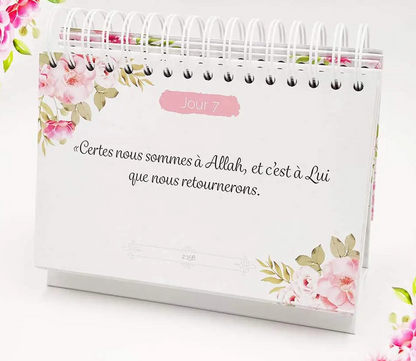 Jour 7
«Certes nous sommes à Allah, et c'est à Lui
que nous retournerons.